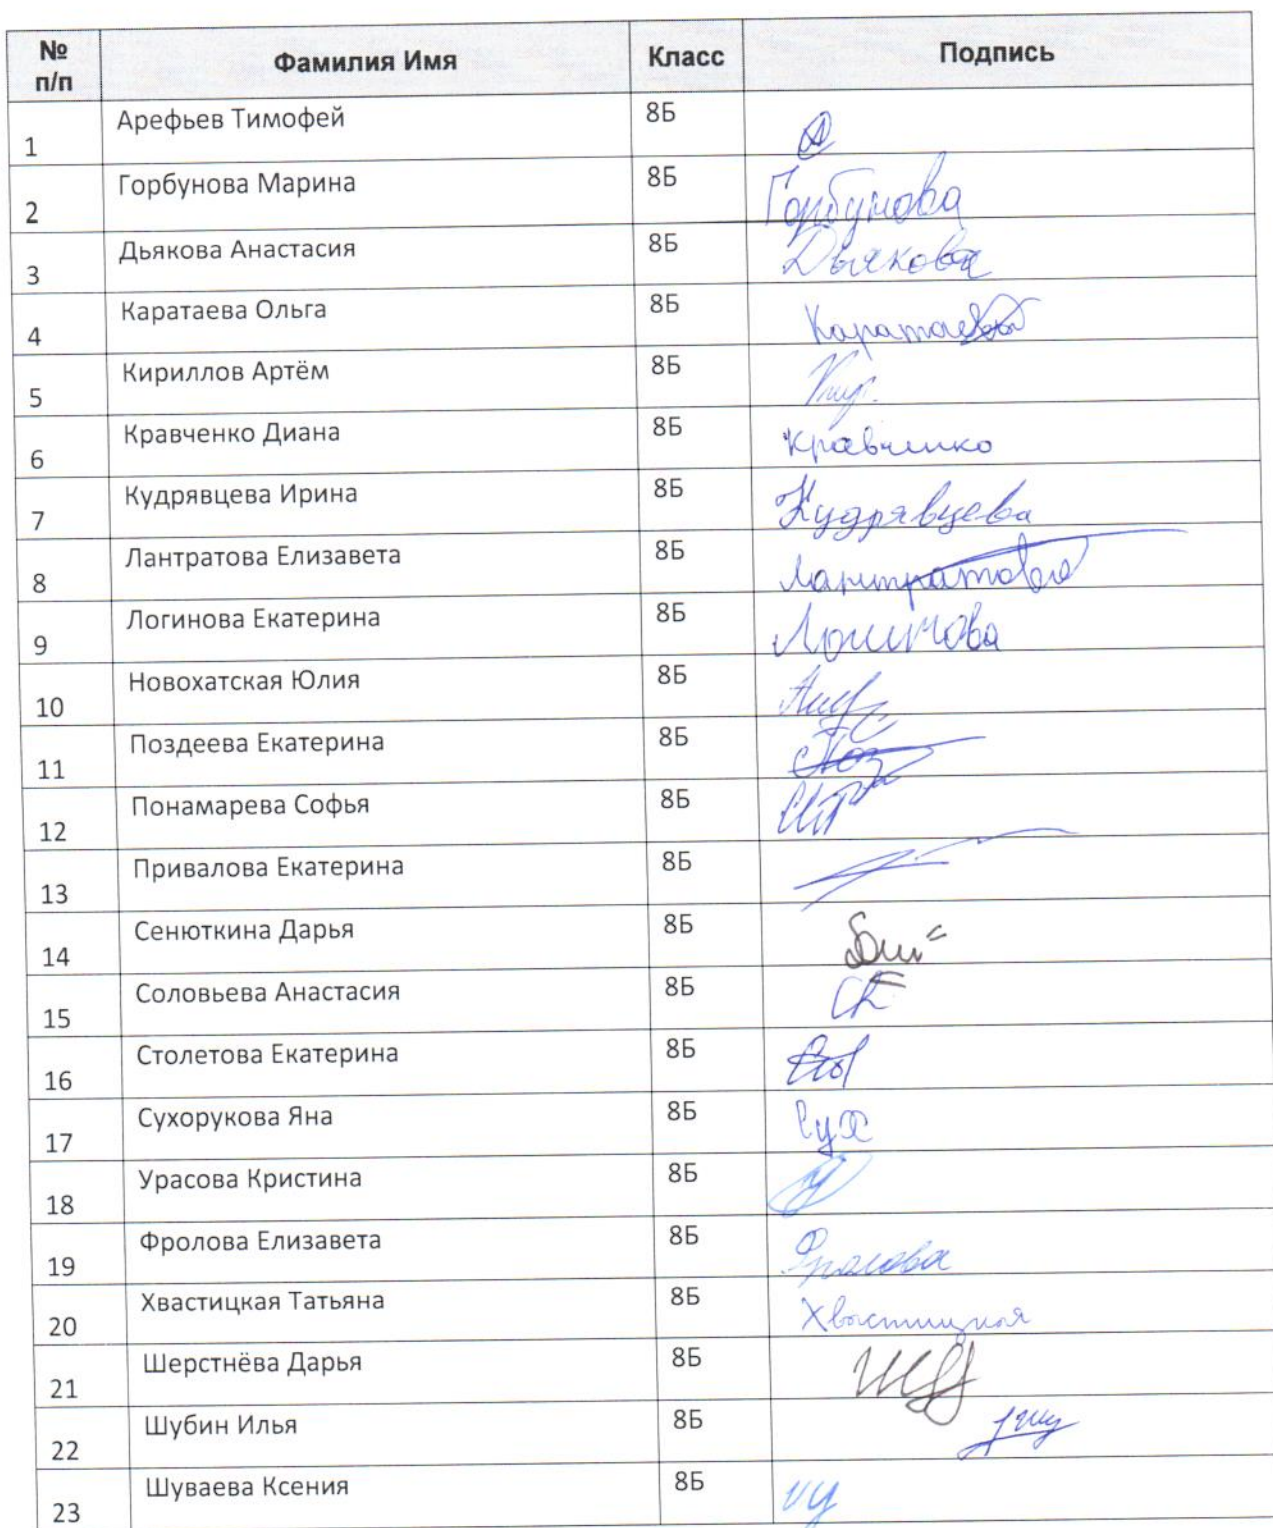 № п/п Фамилия Имя Класс Подпись
1 Арефьев Тимофей 8Б
2 Горбунова Марина 8Б Горбунова
3 Дьякова Анастасия 8Б Дьякова
4 Каратаева Ольга 8Б Каратаева
5 Кириллов Артём 8Б Кир.
6 Кравченко Диана 8Б Кравченко
7 Кудрявцева Ирина 8Б Кудрявцева
8 Лантратова Елизавета 8Б Лантратова
9 Логинова Екатерина 8Б Логинова
10 Новохатская Юлия 8Б
11 Поздеева Екатерина 8Б Поз
12 Понамарева Софья 8Б
13 Привалова Екатерина 8Б
14 Сенюткина Дарья 8Б
15 Соловьева Анастасия 8Б
16 Столетова Екатерина 8Б
17 Сухорукова Яна 8Б Сух
18 Урасова Кристина 8Б
19 Фролова Елизавета 8Б Фролова
20 Хвастицкая Татьяна 8Б Хвастицкая
21 Шерстнёва Дарья 8Б
22 Шубин Илья 8Б
23 Шуваева Ксения 8Б